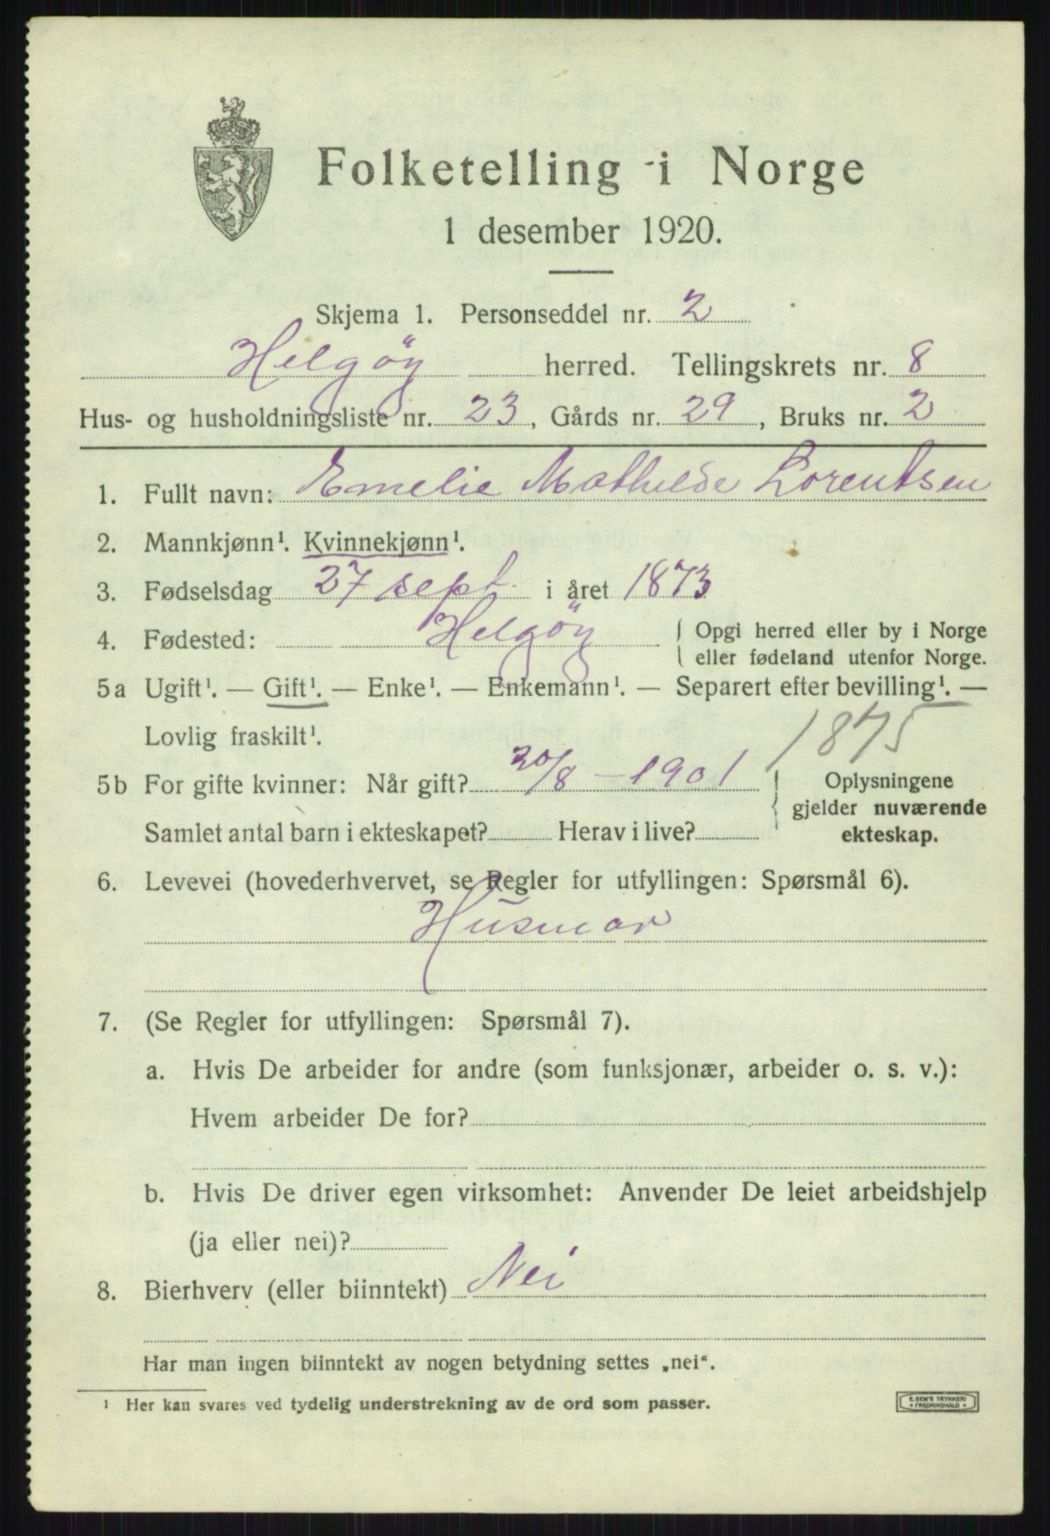 Folketelling i Norge
1 desember 1920.
Skjema 1. Personseddel nr. 2
Helgöy herred. Tellingskrets nr. 8
Hus- og husholdningsliste nr. 23, Gårds nr. 29, Bruks nr. 2
1. Fullt navn: Emelie Mathilde Lorentsen
2. Mannkjønn¹. Kvinnekjønn¹.
3. Fødselsdag 27 sept. i året 1873
4. Fødested: Helgöy { Opgi herred eller by i Norge
eller fødeland utenfor Norge.
5a Ugift¹. — Gift¹. — Enke¹. — Enkemann¹. — Separert efter bevilling¹. —
Lovlig fraskilt¹.
1875
5b For gifte kvinner: Når gift? 20/8 - 1901
Samlet antal barn i ekteskapet? Herav i live?
{ Oplysningene
gjelder nuværende
ekteskap.
6. Levevei (hovederhvervet, se Regler for utfyllingen: Spørsmål 6).
Husmor
7. (Se Regler for utfyllingen: Spørsmål 7).
a. Hvis De arbeider for andre (som funksjonær, arbeider o. s. v.):
Hvem arbeider De for?
b. Hvis De driver egen virksomhet: Anvender De leiet arbeidshjelp
(ja eller nei)?
8. Bierhverv (eller biinntekt) Nei
Har man ingen biinntekt av nogen betydning settes „nei“.
¹ Her kan svares ved tydelig understrekning av de ord som passer.
E. SEM'S TRYKKERI
• FREDRIKSHALD •